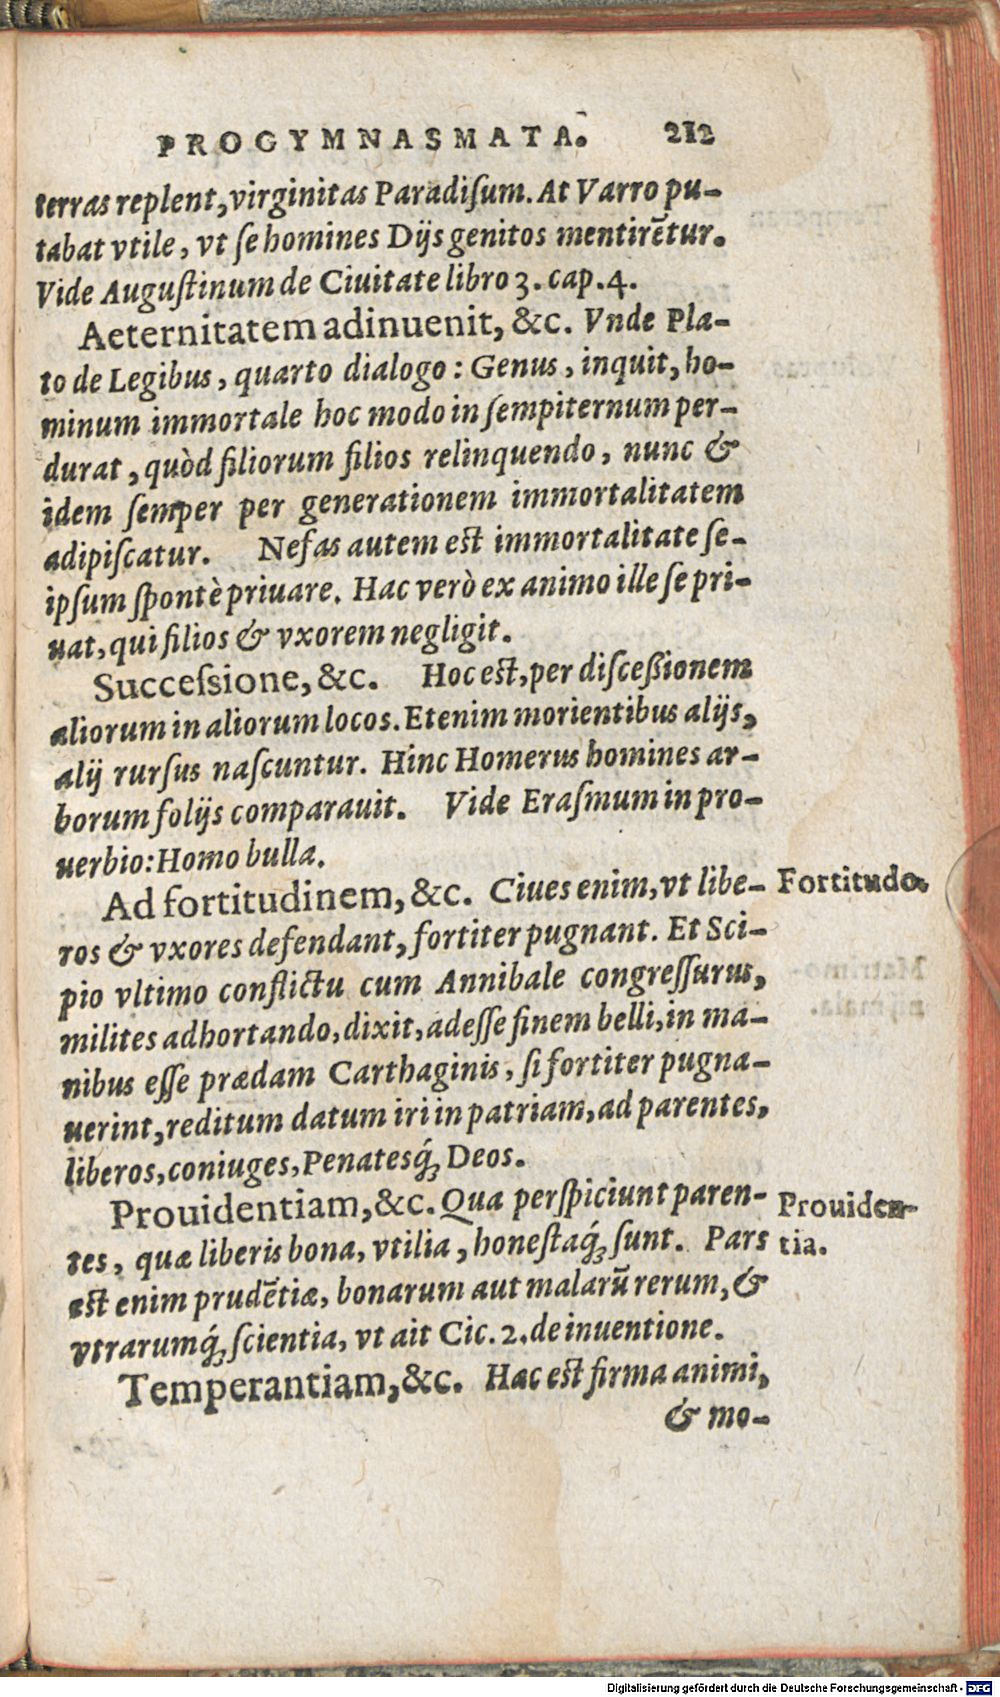 PROGYMNASMATA. 212
terras replent, virginitas Paradiſum. At Varro pu-
tabat vtile, vt ſe homines Dijs genitos mentirẽtur.
Vide Auguſtinum de Ciuitate libro 3. cap. 4.
Aeternitatem adinuenit, &c. Vnde Pla-
to de Legibus, quarto dialogo: Genus, inquit, ho-
minum immortale hoc modo in ſempiternum per-
durat, quòd filiorum filios relinquendo, nunc &
idem ſemper per generationem immortalitatem
adipiſcatur. Nefas autem est immortalitate ſe-
ipſum ſpontè priuare. Hac verò ex animo ille ſe pri-
uat, qui filios & vxorem negligit.
Succeſsione, &c. Hoc est, per diſceßionem
aliorum in aliorum locos. Etenim morientibus alijs,
alij rurſus naſcuntur. Hinc Homerus homines ar-
borum folijs comparauit. Vide Eraſmum in pro-
uerbio: Homo bulla.
Ad fortitudinem, &c. Ciues enim, vt libe-
Fortitudo.
ros & vxores defendant, fortiter pugnant. Et Sci-
pio vltimo conflictu cum Annibale congreſſurus,
milites adhortando, dixit, adeſſe finem belli, in ma-
nibus eſſe prædam Carthaginis, ſi fortiter pugna-
uerint, reditum datum iri in patriam, ad parentes,
liberos, coniuges, Penatesq́; Deos.
Prouidentiam, &c. Qua perſpiciunt paren-
Prouiden-
tes, quæ liberis bona, vtilia, honeſtaq́; ſunt. Pars
tia.
est enim prudẽtiæ, bonarum aut malarũ rerum, &
vtrarumq́; ſcientia, vt ait Cic. 2. de inuentione.
Temperantiam, &c. Hac est firma animi,
& mo-
Digitalisierung gefördert durch die Deutsche Forschungsgemeinschaft - DFG